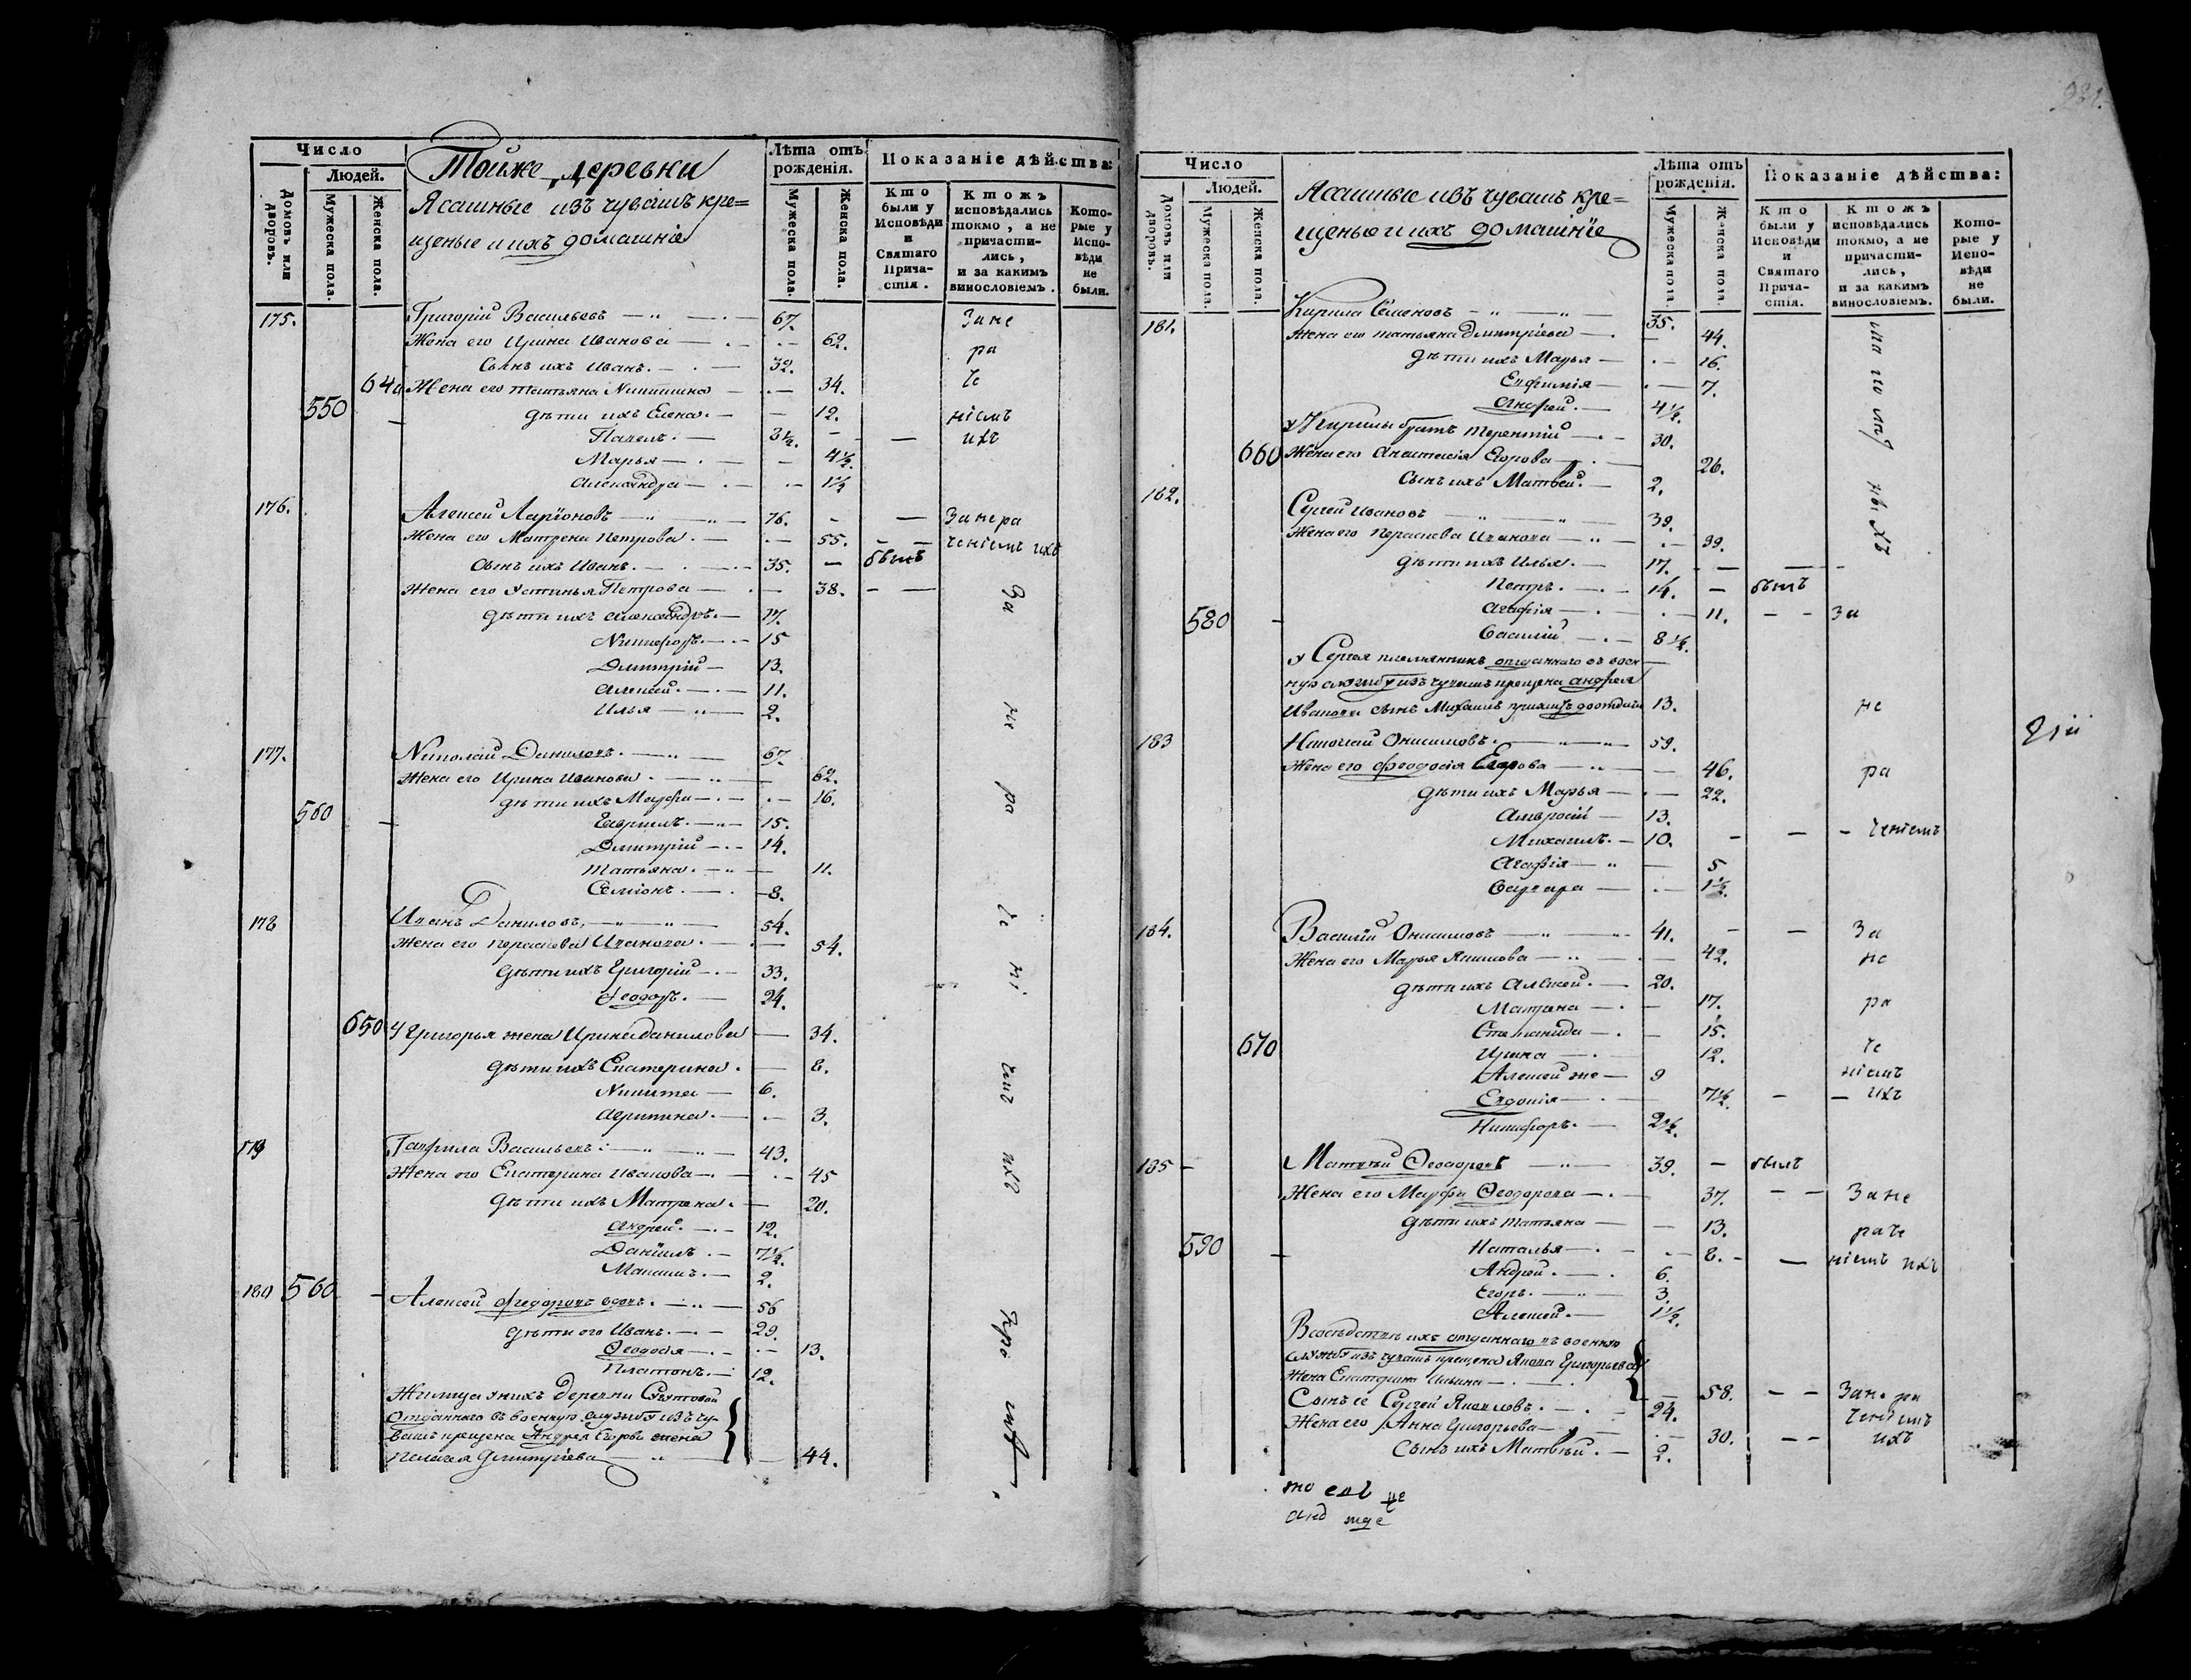 Число
Людей.
Домовъ или дворовъ.
Мужеска пола.
Женска пола.
Тойже деревни
Ясашные изъ чувашъ кре=
щеные и ихъ домашніе
Лѣта отъ рождения.
Мужеска пола.
Женска пола.
Показаніе дѣйства:
Кто были у Исповѣди и Святаго Прича-стія.
Ктожъ исповѣдались токмо, а не причасти-лись, и за какимъ винословіемъ.
Кото-рые у Испо-вѣди не были.
175. Григорій Васильевъ 67. Зане
Жена его Ирина Иванова 62. ра
Сынъ ихъ Иванъ. 32.
640 Жена его татьяна Никитина 34. че
550 дѣти ихъ Елена. 12. ніемъ
Павелъ. ихъ
Марья 4½.
Александра 1½
176. Алексей Ларіоновъ 76. Занера
Жена его Матрена Петрова. 55. ченіемъ ихъ
Сынъ ихъ Иванъ. 35. былъ
Жена его Устинья Петрова 38.
дѣти ихъ Александръ. 17. За
Никифоръ. 15
Дмитрій 13.
Алексей. 11.
Илья 2. не
177. Николай Даниловъ. 67.
Жена его Ирина Иванова. 62.
дѣти ихъ Марфа 16. ра
560 Гаврилъ. 15.
Дмитрій 14.
Татьяна. 11.
Семіонъ. 8.
178 Иванъ Даниловъ, 54. че
Жена его Параскева Иванова. 54.
дѣти ихъ Григорій 33. ні
Феодоръ. 24.
650 У Григорья жена Ирина данилова 34.
дѣти ихъ Екатерина. 8. емъ
Никита 6.
Агрипина. 3.
179 Гаврила Васильевъ: 43. ихъ
Жена его Екатерина Иванова 45
дѣти ихъ Матрена. 20.
Андрей. 12.
Даніилъ. 7½.
Максимъ. 2.
180 560 Алексей Феодоровъ вдовъ. 56
дѣти его Иванъ. 29.
Феодосія 13.
Платонъ. 12.
Жилица у нихъ деревни
отданнаго въ военную службу изъ чу-
вашъ крещена Андрея Егорова жена
Пелагея Дмитріева 44.
Число
Людей.
Домовъ или дворовъ.
Мужеска пола.
Женска пола.
Ясашные изъ чувашъ кре=
щеные и ихъ домашніе
Лѣта отъ рождения.
Мужеска пола.
Женска пола.
Показаніе дѣйства:
Кто были у Исповѣди и Святаго Прича-стія.
Ктожъ исповѣдались токмо, а не причасти-лись, и за какимъ винословіемъ.
Кото-рые у Испо-вѣди не были.
181. Кирила Семеновъ 35.
Жена его татьяна Дмитріева 44.
дѣти ихъ Марья 16.
Евфимія 7.
Андрей. 4½.
у Кирилы братъ Терентій 30.
660 Жена его Анастасія Егорова 26.
Сынъ ихъ Матвей. 2.
182. Сергей Ивановъ 39.
Жена его Параскева Иванова 39.
дѣти ихъ Илья. 17.
Петръ. 14. былъ
Агафія 11. За
580 Василій 8½.
у Сергея племянникъ отданнаго въ воен
ную службу изъ чувашъ крещена Андрея
Иванова сынъ Михаилъ 13. не
183 Николай Онисимовъ. 59.
Жена его Феодосія Егорова 46. ра
дѣти ихъ Марья 22.
Амвросій 13.
Михаилъ. 10. ченіемъ
Агафія 5
Варвара 1½.
184. Василій Онисимовъ 41. За
Жена его Марья Якимова 42. не
дѣти ихъ Алексей. 20.
Матрена 17. ра
Степанида 15.
670 Ирина 12. че
Алексей же 9 ніемъ
Евдокія 7½. ихъ
Никифоръ. 2½.
185 Матвей Феодоровъ 39. былъ
Жена его Марфа Феодорова 37. Зане
дѣти ихъ татьяна 13. раче
590 Наталья 8. ніемъ ихъ
Андрей. 6.
Егоръ. 3.
Алексей. 1½.
Въ соседствѣ ихъ отданнаго въ военную
службу изъ чувашъ крещена Якова Григорьева
жена Екатерина 58. Зане ра
Сынъ ее Сергей Яковлевъ. 24. ченіемъ
Жена его Анна Григорьева 30. ихъ
Сынъ ихъ Матвѣй. 2.